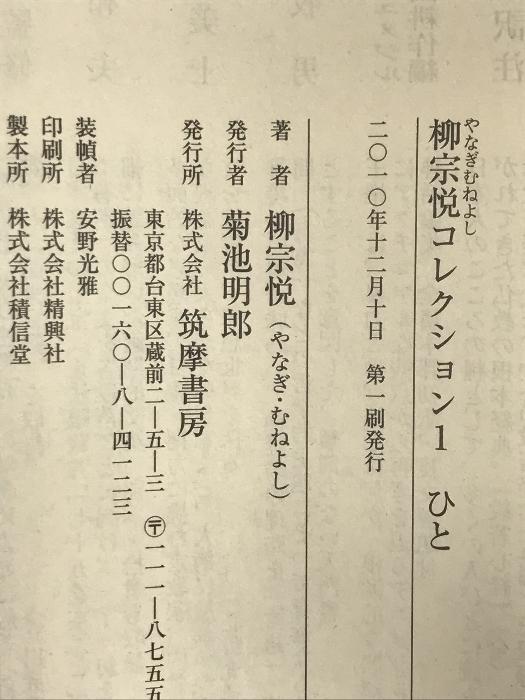 やなぎむねよし
柳宗悦コレクション1 ひと
二〇一〇年十二月十日 第一刷発行
著者 柳宗悦（やなぎ・むねよし）
発行者 菊池明郎
発行所 株式会社 筑摩書房
東京都台東区蔵前二―五―三 〒一一一―八七五五
振替〇〇一六〇―八―四一二三
装幀者 安野光雅
印刷所 株式会社精興社
製本所 株式会社積信堂